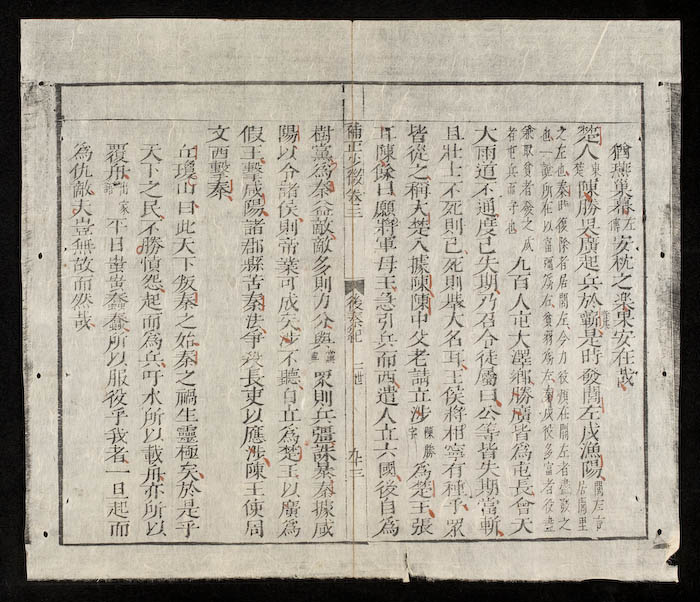 猶燕巢幕左傳安枕之樂果安在哉
楚人東楚陳勝吳廣起兵於蘄是時發閭左戍漁陽閭左言居閭里
之左也秦時復除者居閭左今力役煩在閭左者盡發之
也一說所在以富彊為右貧弱為左秦戍役多富者役盡
兼取貧者發之戍
者屯兵而守也九百人屯大澤鄉勝廣皆為屯長會天
大雨道不通度已失期乃召令徒屬曰公等皆失期當斬
且壯士不死則已死則舉大名耳王侯將相寧有種乎眾
皆從之稱大楚入據陳陳中父老請立涉陳勝字為楚王張
耳陳餘曰願將軍毋王急引兵而西遣人立六國後自為
樹黨為秦益敵敵多則力分與眾則兵彊誅暴秦據咸
陽以令諸侯則帝業可成矣涉不聽自立為楚王以廣為
假王擊滎陽諸郡縣苦秦法爭殺長吏以應涉陳王使周
文西擊秦
丘瓊山曰此天下叛秦之始秦之禍生靈極矣於是乎
天下之民不勝憤怨起而為兵吁水所以載舟亦所以
覆舟家語平日蚩蚩蠢蠢所以服役乎我者一旦起而
為仇敵夫豈無故而然哉
後秦紀 二世